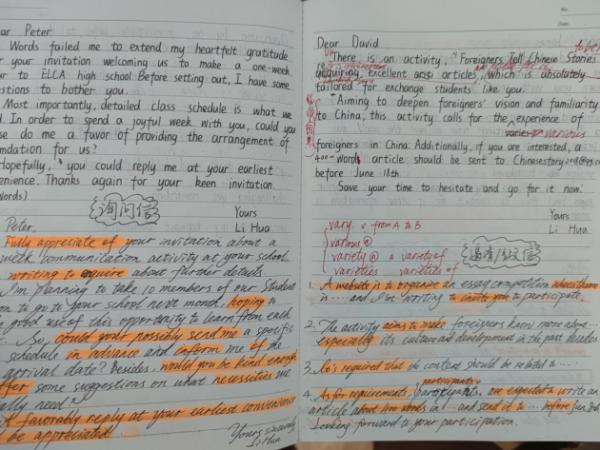 ar Peter
Words failed me to extend my heartfelt gratitude
your invitation welcoming us to make a one-week
ur to ELCA high school. Before setting out, I have some
estions to bother you.
Most importantly, detailed class schedule is what we
d. In order to spend a joyful week with you, could you
se do me a favor of providing the arrangement of
mdation for us?
Hopefully, you could reply me at your earliest
enience. Thanks again for your keen invitation.
words)
Yours
Li Hua
询问信
Peter,
Fully appreciate of your invitation about a
week communitation activity at your school
writing to enquire about further details
I'm planning to take 10 members of our Student
on to go to your school next month, hoping to
good use of this opportunity to learn from each
So, could your possibly send me a specific
schedule in advance and inform me of the
arrival date? Besides, would you be kind enough
ffer some suggestions on what necessities we
ally need?
A favorably reply at your earliest convenience
be appreciated
Yours sincerely
Li Hua
No.
Date.
Dear David
There is an activity, "Foreigners Tell Chinese Stories
acquiring excellent articles, which is absolutely
tailored for exchange students like you.
Aiming to deepen foreigners' vision and familiarity
to China, this activity calls for the experience of
varies various
foreigners in China. Additionally, if you are interested, a
400-words article should be sent to
before June 18th
Save your time to hesitate and go for it now!
Yours
Li Hua
vary v from A to B
various
variety a variety of
varieties varieties of
邀请/征文信
1. A website is to organize an essay competition
in ... and I'm writing to invite you to participate.
2. The activity aims to make foreigners know more about ...
especially its culture and development in the past decades
3. It's required that the content should be related to ...
4. As for requirements, participants are expected to write an
participants
article about 400 words in ... and send it to ... before Jun
Looking forward to your participation.